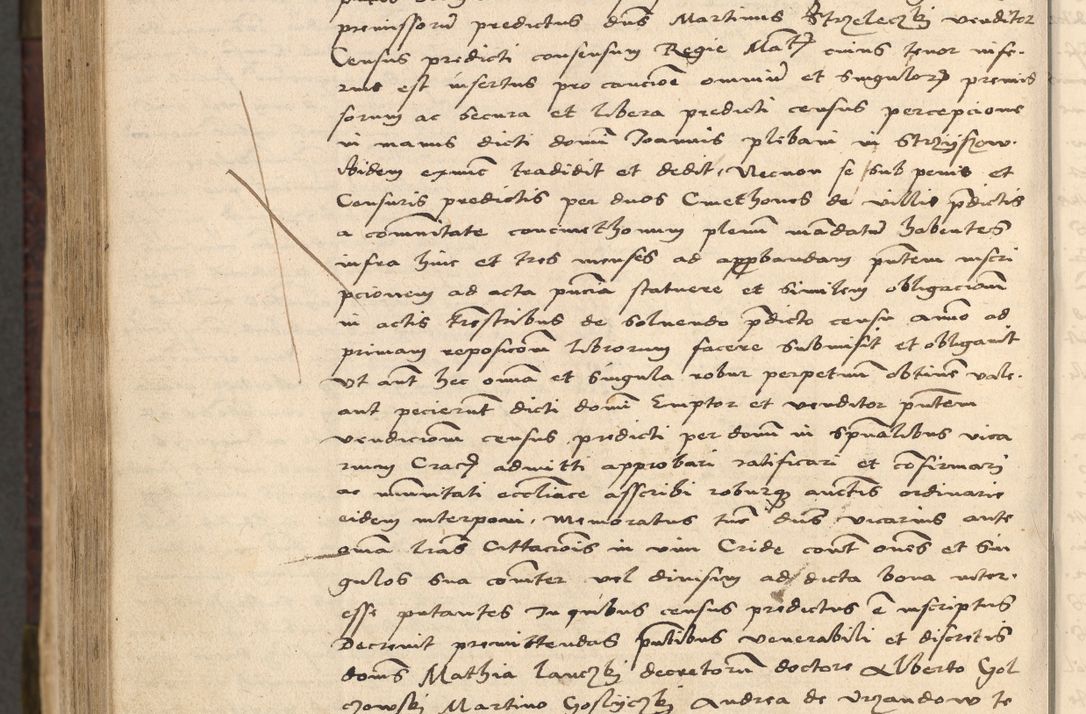 premissorũ predictus dñs Martinus Strzeleczki venditor
Census predicti consensum Regie Matis cuius tenor infe-
rius est insertus pro caucioñe omniũ et singulorꝫ premis
sorum ac secura et libera predicti census percepcione
in manus dicti domĩ Joannis plebani in Strzyszow.
ibidem exnũc tradidit et dedit, Necnon se sub penis et
Censuris predictis per duos Cmethones de villis p̃dictis
a com̃unitate concmethonum plenũ mandatũ habentes
infra hinc et tres menses ad approbandam p̃ntem inscri
pcionem ad acta p̃ncia statuere et similem obligacioñ
in actis tr̃estribus de solvendo p̃dicto censu añno ad
primam reposicioñ librorum facere submisit et obligavit
Vt aũt hec om̃ia et singula robur perpetuũ obtineñt vale-
ant pecierũt dicti domĩ Emptor et venditor p̃ntem
vendicioñ census predicti per domũ in sp̃ualibus vica
rium Cracꝫ admitti approbari ratificari et cõfirmari
ac im̃unitati eccl̃iace asscribi roburqꝫ auctis ordinarie
eidem interponi, Memoratus tũc dñs vicarius ante
om̃ia lr̃as Cittacioĩs in vim Cride cont̃ oñes et sin
gulos sua com̃iter vel divisim ad dicta bona inter-
esse putantes In quibus census predictus ẽ inscriptus
Decrevit premittendas p̃ntibus venerabili et discretis
domĩs Mathia Lanczki decretorũ doctore Alberto Gol
czowski Martino Gosliczki Andrea de Vrzandow te